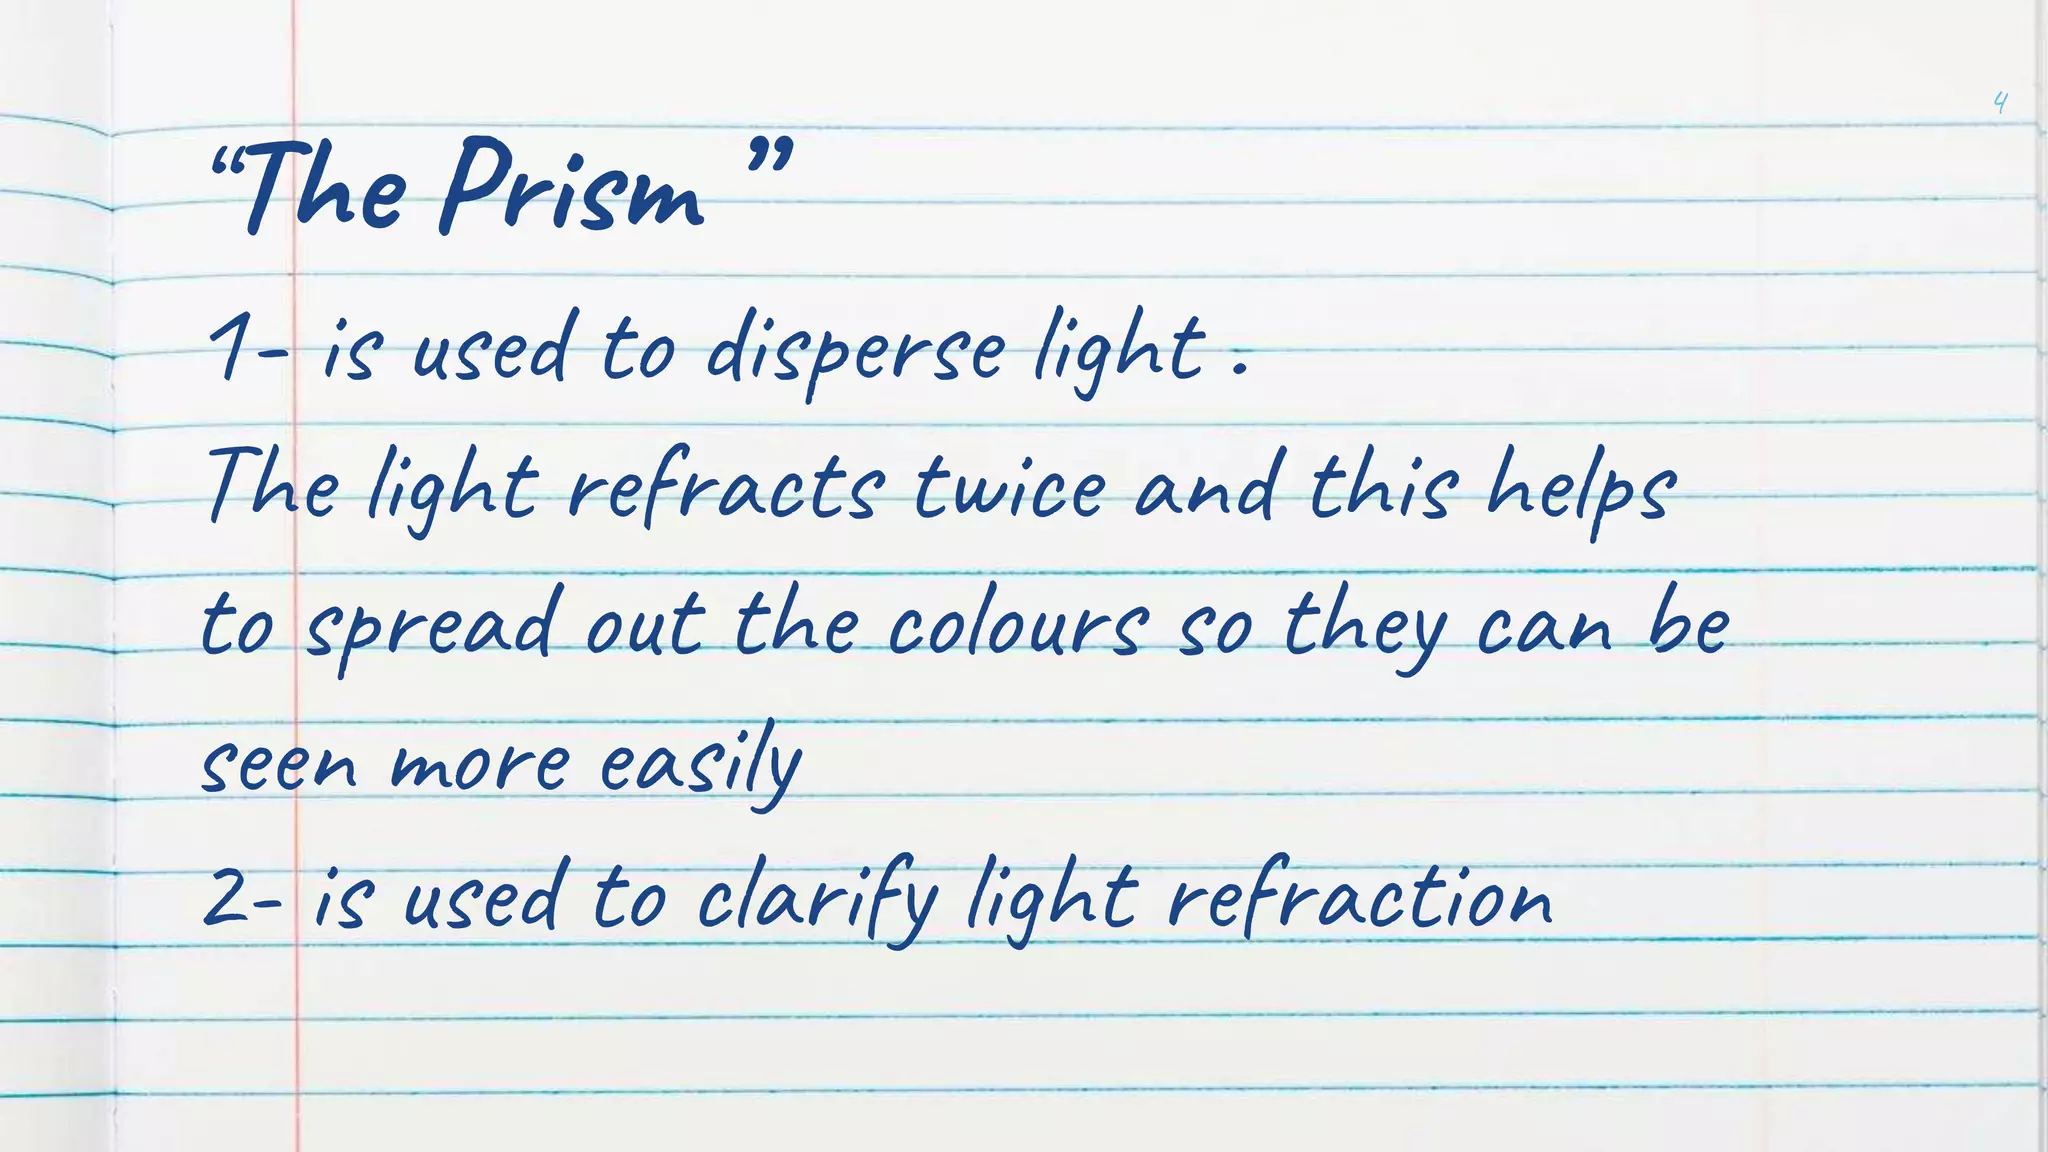 4
“The Prism ”
1- is used to disperse light .
The light refracts twice and this helps
to spread out the colours so they can be
seen more easily
2- is used to clarify light refraction